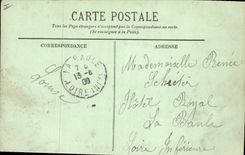 CARTE POSTALE
Tous les Pays étrangers n'acceptent pas la Correspondance au recto.
(Se renseigner à la Poste).
CORRESPONDANCE
ADRESSE
LA BAULE
13-8
09
LOIRE INFRE
Louise
Mademoiselle Renée
Hôtel Royal
La Baule
Loire Inférieure